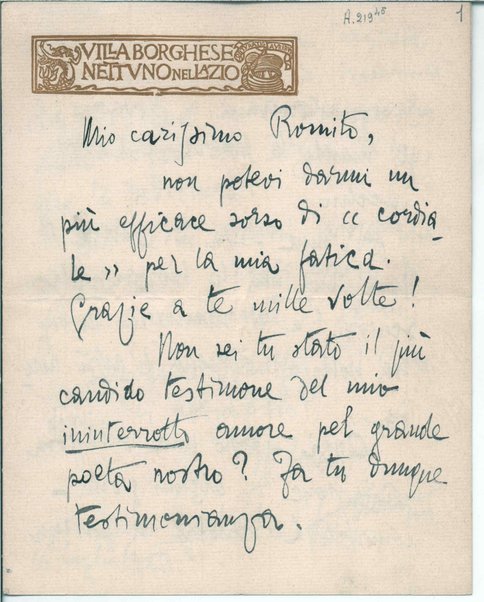 A.219 45
1
VILLA BORGHESE
NETTVNO NEL LAZIO
Mio carissimo Romito,
non potevi darmi un
più efficace sorso di « cordia-
le » per la mia fatica.
Grazie a te mille volte!
Non sei tu stato il più
candido testimone del mio
ininterrotto amore pel grande
poeta nostro? Fa tu dunque
testimonianza.